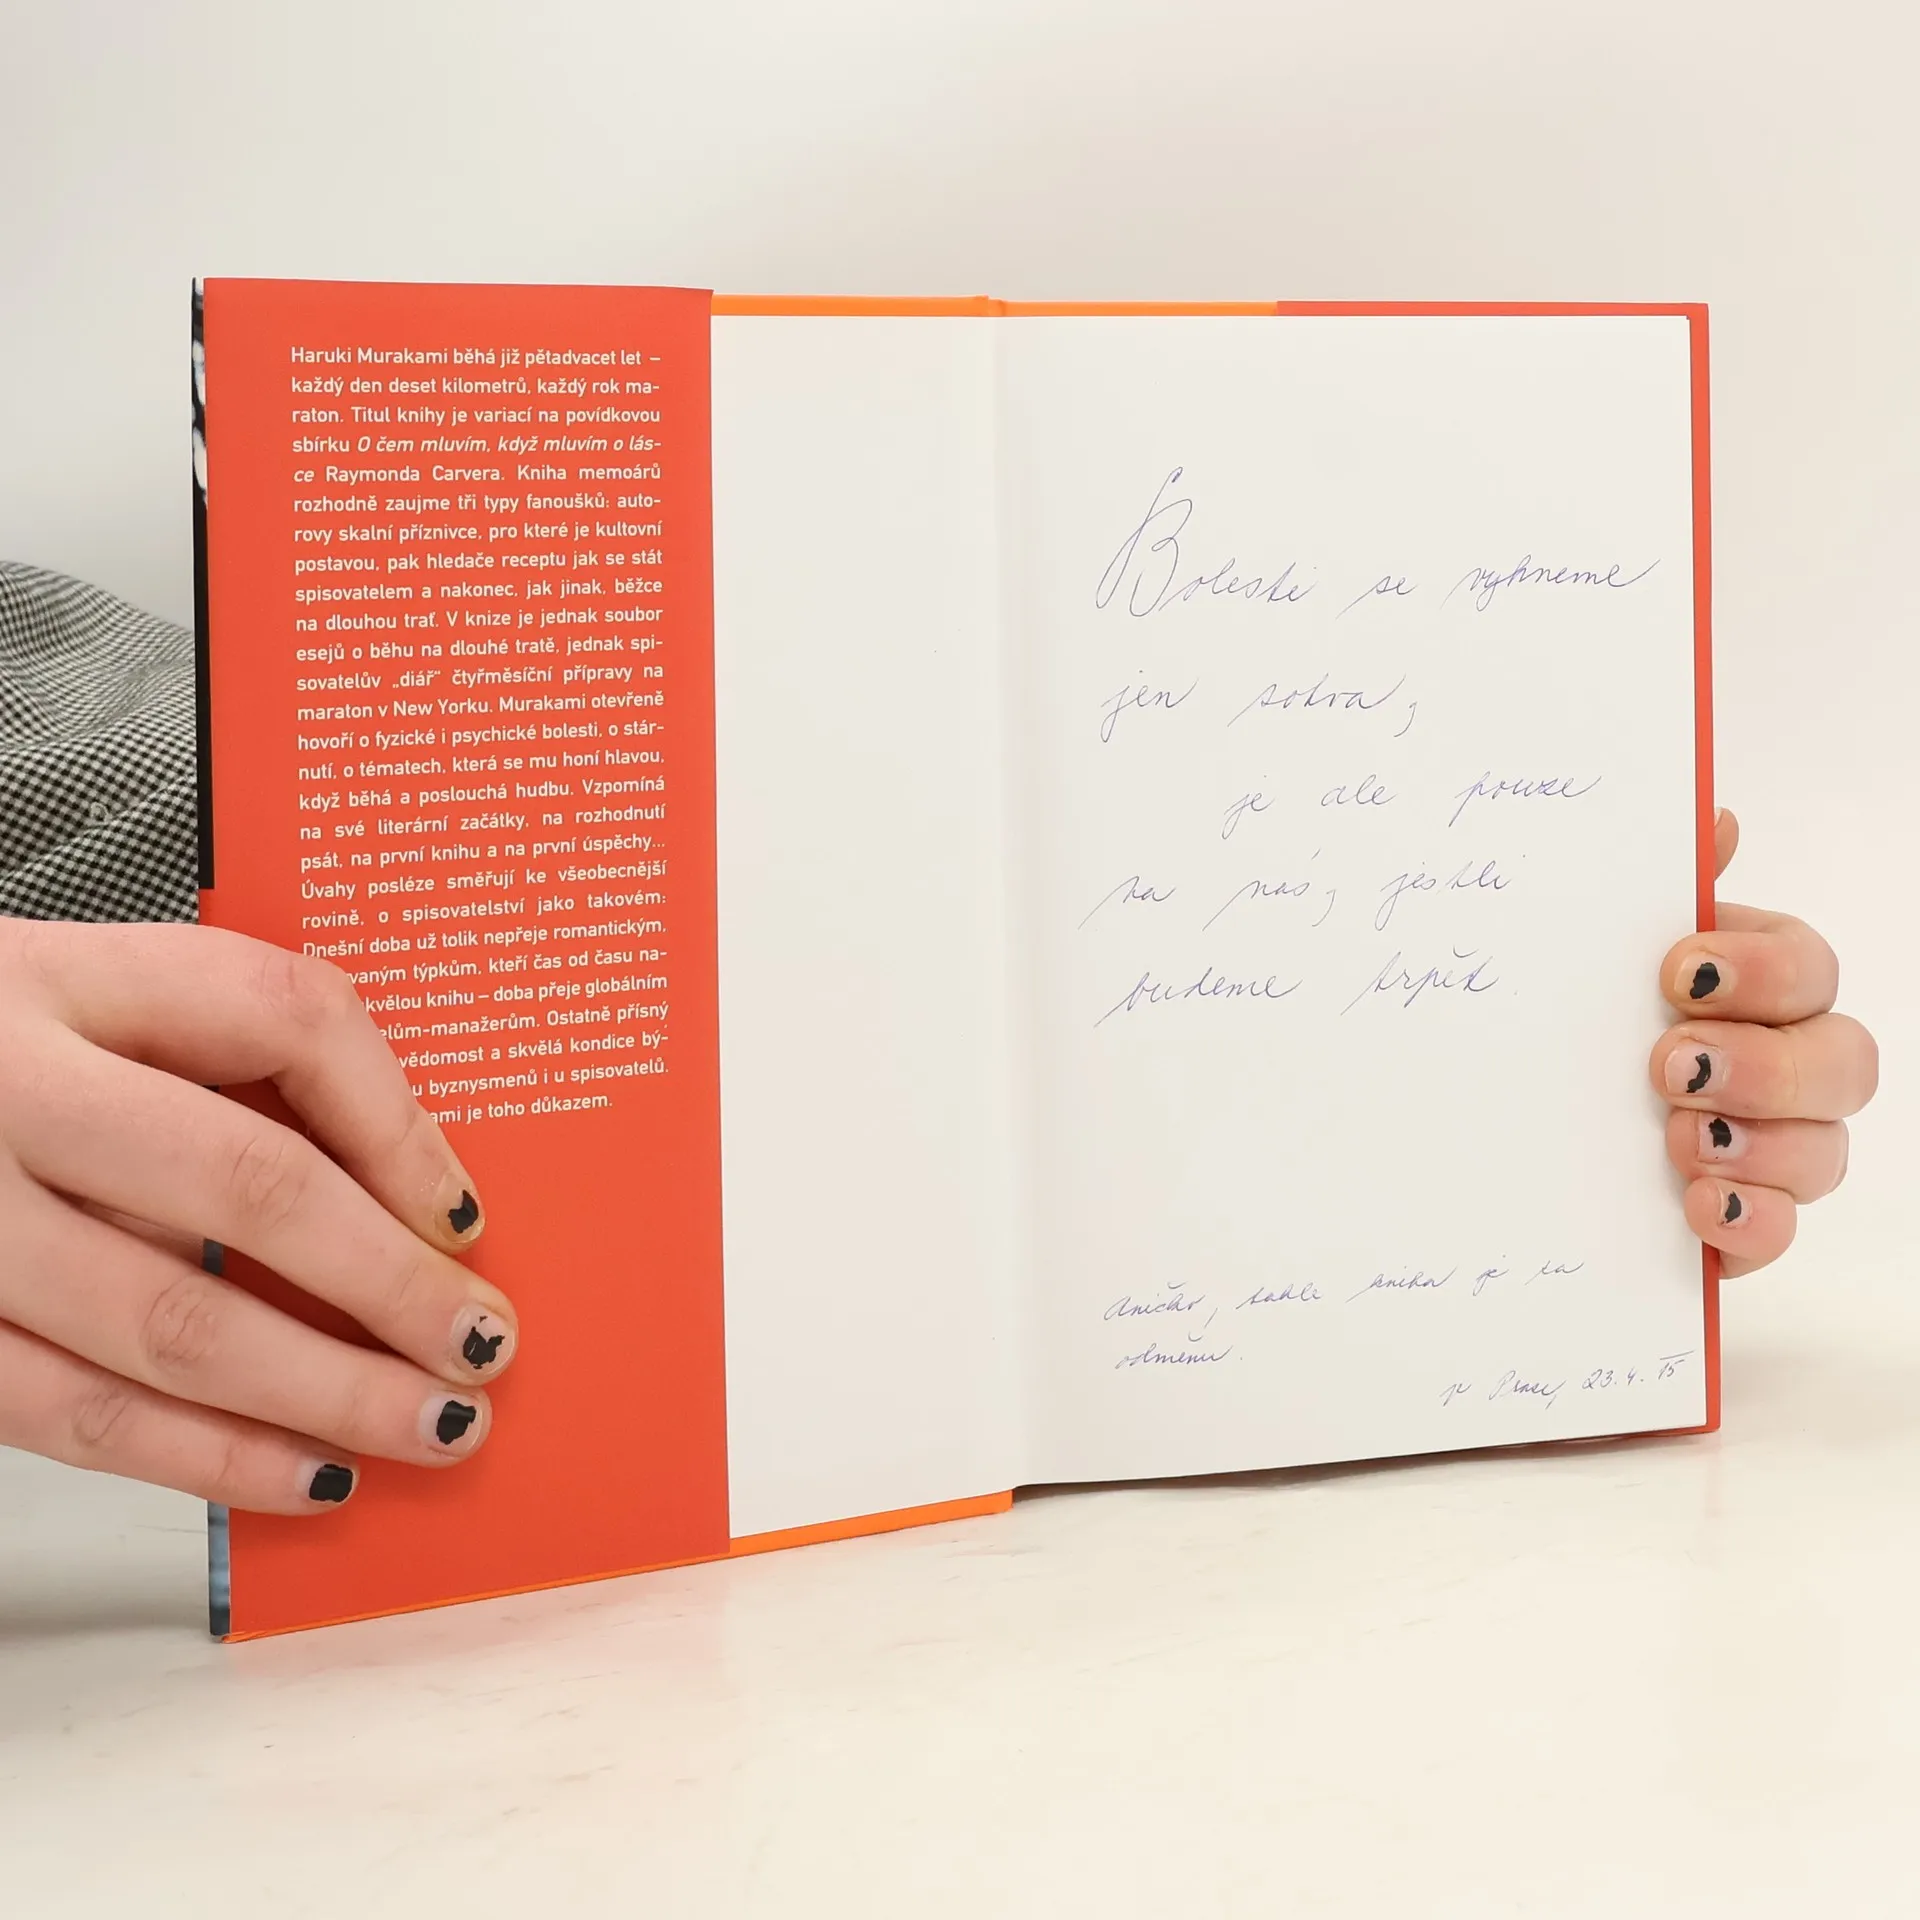 Haruki Murakami běhá již pětadvacet let –
každý den deset kilometrů, každý rok ma-
raton. Titul knihy je variací na povídkovou
sbírku O čem mluvím, když mluvím o lás-
ce Raymonda Carvera. Kniha memoárů
rozhodně zaujme tři typy fanoušků: auto-
rovy skalní příznivce, pro které je kultovní
postavou, pak hledače receptu jak se stát
spisovatelem a nakonec, jak jinak, běžce
na dlouhou trať. V knize je jednak soubor
esejů o běhu na dlouhé tratě, jednak spi-
sovatelův „diář“ čtyřměsíční přípravy na
maraton v New Yorku. Murakami otevřeně
hovoří o fyzické i psychické bolesti, o stár-
nutí, o tématech, která se mu honí hlavou,
když běhá a poslouchá hudbu. Vzpomíná
na své literární začátky, na rozhodnutí
psát, na první knihu a na první úspěchy...
Úvahy posléze směřují ke všeobecnější
rovině, o spisovatelství jako takovém:
Dnešní doba už tolik nepřeje romantickým,
vaným týpkům, kteří čas od času na-
kvělou knihu – doba přeje globálním
elům-manažerům. Ostatně přísný
vědomost a skvělá kondice bý-
u byznysmenů i u spisovatelů.
ami je toho důkazem.
Bolesti se vyhneme
jen sotva,
je ale pouze
na nás, jestli
budeme trpět.
Aničko, tahle kniha je za
odměnu.
V Praze, 23.4. 15